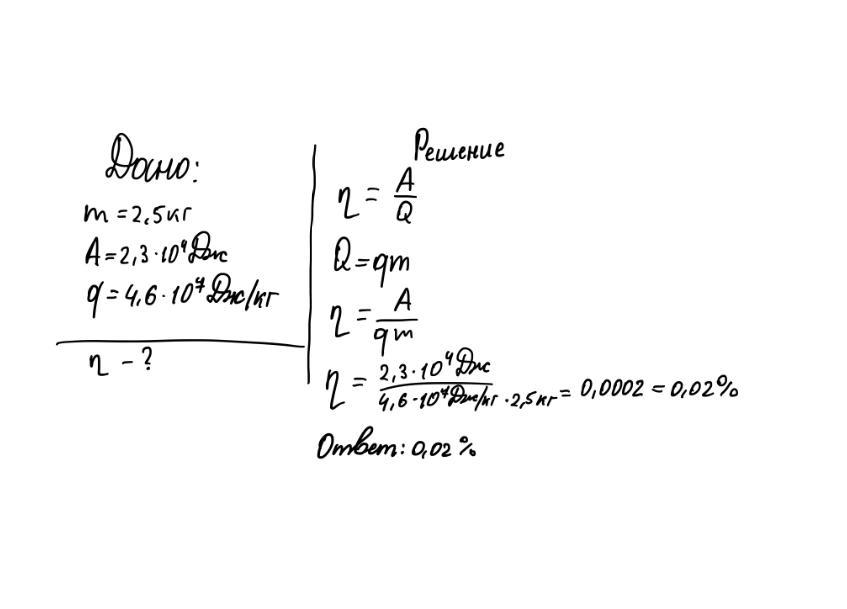 Дано:
m = 2,5 кг
A = 2,3 · 10⁴ Дж
q = 4,6 · 10⁷ Дж/кг
η - ?
Решение
η = A/Q
Q = qm
η = A/qm
η = 2,3 · 10⁴ Дж / 4,6 · 10⁷ Дж/кг · 2,5 кг = 0,0002 = 0,02%
Ответ: 0,02%